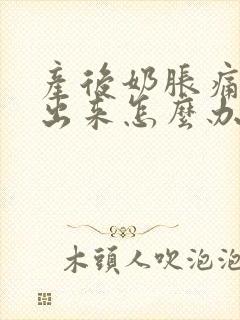 産後奶脹痛
出来怎麼办
木頭人吹泡泡